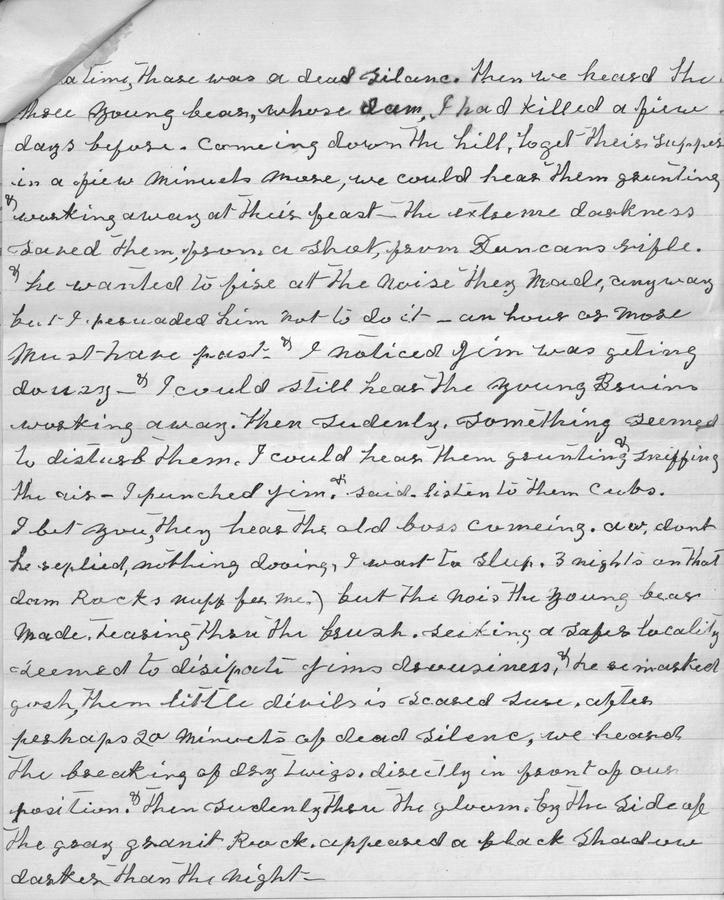 a time, thare was a dead silanc. then we heard the
three young bear, whose dam, I had killed a fiew
days before. comeing down the hill, to get their supper
in a fiew minuets more, we could hear them grunting
& working away at their feast — the extreme darkness
saved them, from a shot, from Duncans rifle.
& he wanted to fire at the noise they made, anyway
but I persuaded him not to do it — an hour or more
must have past — & I noticed Jim was geting
douzy — & I could still hear the young Bruins
working away. then sudenly. something seemed
to disturb them. I could hear them grunting & sniffing
the air — I punched Jim. & said. listen to them cubs.
I bet you, they hear the old boss comeing. aw, dont
he replied, nothing dooing, I want to sleep. 3 nights on that
dam Rocks nuff fer me.) but the nois the young bear
made. tearing thru the brush. seeking a safer locality
seemed to disipate Jims drousiness, & he remarked
gosh, them little devils is scared sure. after
perhaps 20 minuets of dead silenc, we heard
the breaking of dry twigs. directly in front of our
position. & then sudenly thru the gloom. by the side of
the gray granit Rock. appeared a black shadow
darker than the night —